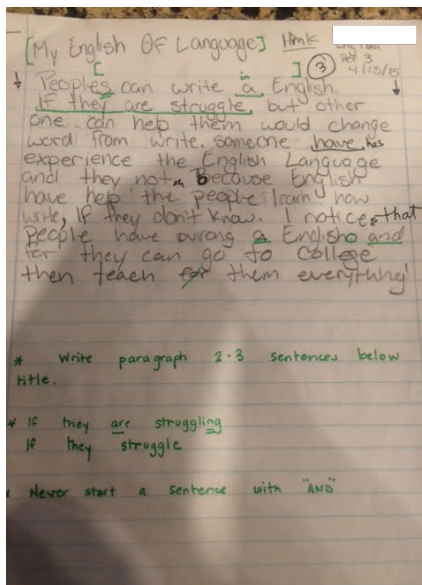 [My English Of Language] Hmk
[ ] 3 Per 3
4/13/15
in
Peoples can write a English.
If they are struggle, but other
one can help them would change
word from write. someone have has
experience the English Language
and they not Because English
have help the people learn how
write, If they don't know. I notice that
People have wrong a English and
for they can go to college
then teach for them everything!
* Write paragraph 2-3 sentences below
title.
* If they are struggling
If they struggle
* Never start a sentence with "AND"